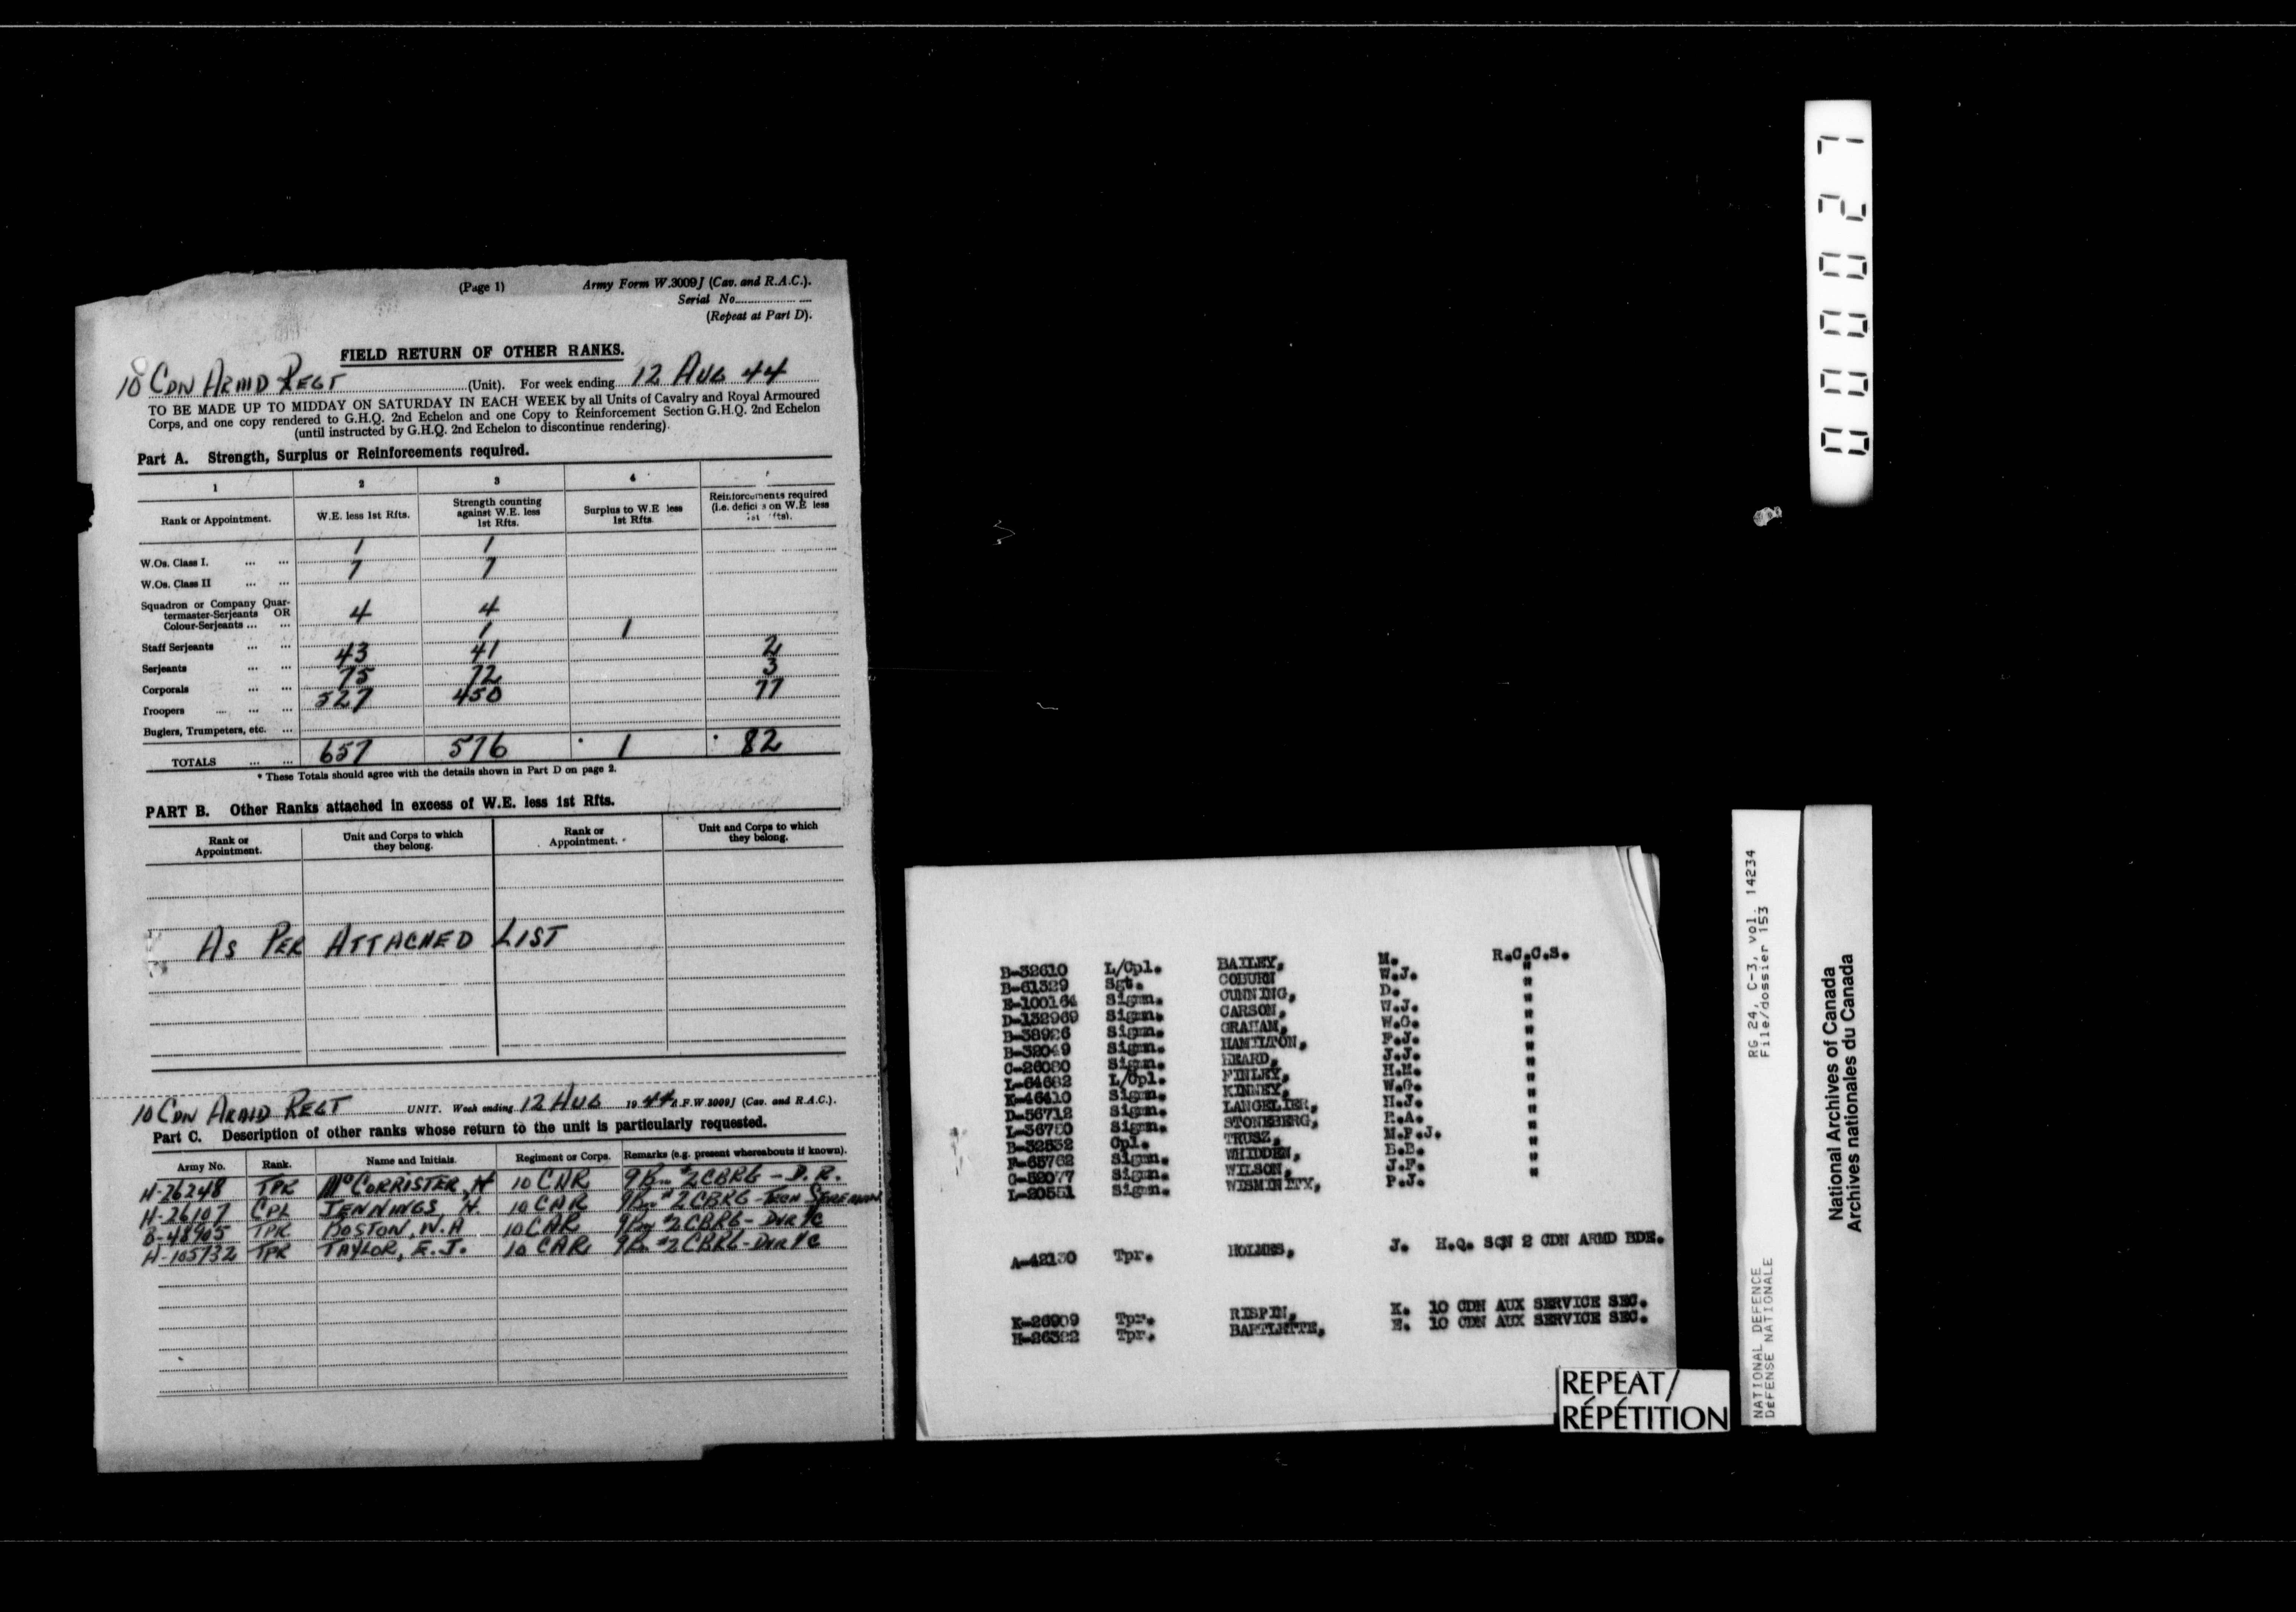 (Page 1) Army Form W.3009J (Cav. and R.A.C.).
Serial No.
(Repeat at Part D).
FIELD RETURN OF OTHER RANKS.
10 CDN ARMD REGT (Unit). For week ending 12 AUG 44
TO BE MADE UP TO MIDDAY ON SATURDAY IN EACH WEEK by all Units of Cavalry and Royal Armoured
Corps, and one copy rendered to G.H.Q. 2nd Echelon and one Copy to Reinforcement Section G.H.Q. 2nd Echelon
(until instructed by G.H.Q. 2nd Echelon to discontinue rendering).
Part A. Strength, Surplus or Reinforcements required.
1 2 3 4
Rank or Appointment. W.E. less 1st Rfts. Strength counting against W.E. less 1st Rfts. Surplus to W.E less 1st Rfts. Reinforcements required (i.e. on W.E less
W.Os. Class I. ... ... 1 1
W.Os. Class II ... ... 7 7
Squadron or Company Quar-
termaster-Serjeants OR
Colour-Serjeants ... ... 4 4
Staff Serjeants ... ... 1 1
Serjeants ... ... 43 41 2
Corporals ... ... 75 72 3
Troopers ... ... ... 527 450 77
Buglers, Trumpeters, etc. ...
TOTALS ... ... 657 576 * 1 * 82
* These Totals should agree with the details shown in Part D on page 2.
PART B. Other Ranks attached in excess of W.E. less 1st Rfts.
Rank or Appointment. Unit and Corps to which they belong. Rank or Appointment. Unit and Corps to which they belong.
AS PER ATTACHED LIST
10 CDN ARMD REGT UNIT. Week ending 12 AUG 1944 A.F.W.3009J (Cav. and R.A.C.).
Part C. Description of other ranks whose return to the unit is particularly requested.
Army No. Rank. Name and Initials. Regiment or Corps. Remarks (e.g. present whereabouts if known).
H-26248 TPR McCORRISTER, H 10 CAR 9 Bn #2 CBRG - D.R.
H-26107 CPL JENNINGS, H. 10 CAR 9 Bn #2 CBRG - TECH STOREMAN
B-48905 TPR BOSTON, W.A 10 CAR 9 Bn #2 CBRG - DVR I/C
H-105732 TPR TAYLOR, E.J. 10 CAR 9 Bn #2 CBRG - DVR I/C
B-32610 L/Cpl. BAILEY, M. R.C.C.S.
B-61329 Sgt. COBURN W.J. "
E-100164 Sigmn. CUNNING, D. "
D-132969 Sigmn. CARSON, W.J. "
B-38926 Sigmn. GRAHAM, W.G. "
B-32049 Sigmn. HAMILTON, F.J. "
C-26080 Sigmn. HEARD, J.J. "
L-64682 L/Cpl. FINLEY, H.M. "
K-46410 Sigmn. KINNEY, W.G. "
D-56712 Sigmn. LANGELIER, H.J. "
L-36750 Sigmn. STONEBERG, R.A. "
B-32532 Cpl. TRUSZ, M.P.J. "
F-65762 Sigmn. WHIDDEN, B.B. "
C-52077 Sigmn. WILSON, J.F. "
L-20551 Sigmn. WISMINITY, P.J. "
A-42130 Tpr. HOLMES, J. H.Q. SQN 2 CDN ARMD BDE.
K-26909 Tpr. RISPIN, K. 10 CDN AUX SERVICE SEC.
H-26322 Tpr. BARTLETTE, E. 10 CDN AUX SERVICE SEC.
REPEAT/
RÉPÉTITION
000027
NATIONAL DEFENCE RG 24, C-3, vol. 14234
DEFENSE NATIONALE File/dossier 153
National Archives of Canada
Archives nationales du Canada